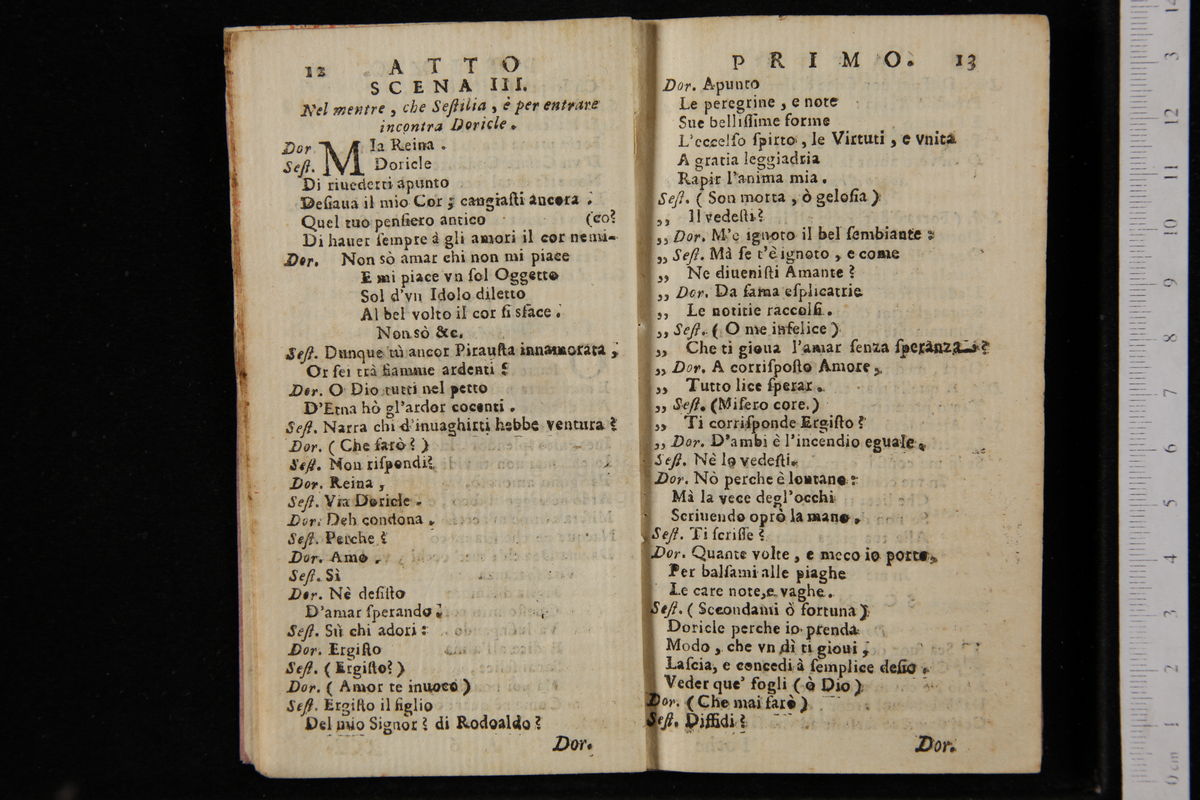 12 ATTO
SCENA III.
Nel mentre, che Seſtilia, è per entrare
incontra Doricle.
Dor. MIa Reina.
Seſt. Doricle
Di riuederti apunto
Deſiaua il mio Cor; cangiaſti ancora
Quel tuo penſiero antico (co?
Di hauer ſempre à gli amori il cor nemi-
Dor. Non sò amar chi non mi piace
E mi piace vn ſol Oggetto
Sol d'vn Idolo diletto
Al bel volto il cor ſi sface.
Non sò &c.
Seſt. Dunque tù ancor Pirauſta innamorata,
Or ſei trà fiamme ardenti?
Dor. O Dio tutti nel petto
D'Etna hò gl'ardor cocenti.
Seſt. Narra chi d'inuaghirti hebbe ventura?
Dor. (Che farò?)
Seſt. Non riſpondi?
Dor. Reina,
Seſt. Via Doricle.
Dor. Deh condona.
Seſt. Perche?
Dor. Amo.
Seſt. Sì
Dor. Nè deſiſto
D'amar ſperando.
Seſt. Sù chi adori:
Dor. Ergiſto
Seſt. (Ergiſto?)
Dor. (Amor te inuoco)
Seſt. Ergiſto il figlio
Del mio Signor? di Rodoaldo?
Dor.
PRIMO. 13
Dor. Apunto
Le peregrine, e note
Sue belliſſime forme
L'eccelſo ſpirto, le Virtuti, e vnita
A gratia leggiadria
Rapir l'anima mia.
Seſt. (Son morta, ò geloſia)
„ Il vedeſti?
„ Dor. M'e ignoto il bel ſembiante:
„ Seſt. Mà ſe t'è ignoto, e come
„ Ne diueniſti Amante?
„ Dor. Da fama eſplicatrie
„ Le notitie raccolſi.
„ Seſt. (O me infelice)
„ Che ti gioua l'amar ſenza ſperanza?
„ Dor. A corriſpoſto Amore,
„ Tutto lice ſperar.
„ Seſt. (Miſero core.)
„ Ti corriſponde Ergiſto?
„ Dor. D'ambi è l'incendio eguale.
Seſt. Nè lo vedeſti.
Dor. Nò perche è lontano:
Mà la vece degl'occhi
Scriuendo oprò la mano.
Seſt. Ti ſcriſſe?
Dor. Quante volte, e meco io porto,
Per balſami alle piaghe
Le care note, e vaghe.
Seſt. (Secondami ò fortuna)
Doricle perche io prenda
Modo, che vn dì ti gioui,
Laſcia, e concedi à ſemplice deſio
Veder que' fogli (ò Dio)
Dor. (Che mai farò)
Seſt. Diffidi?
Dor.